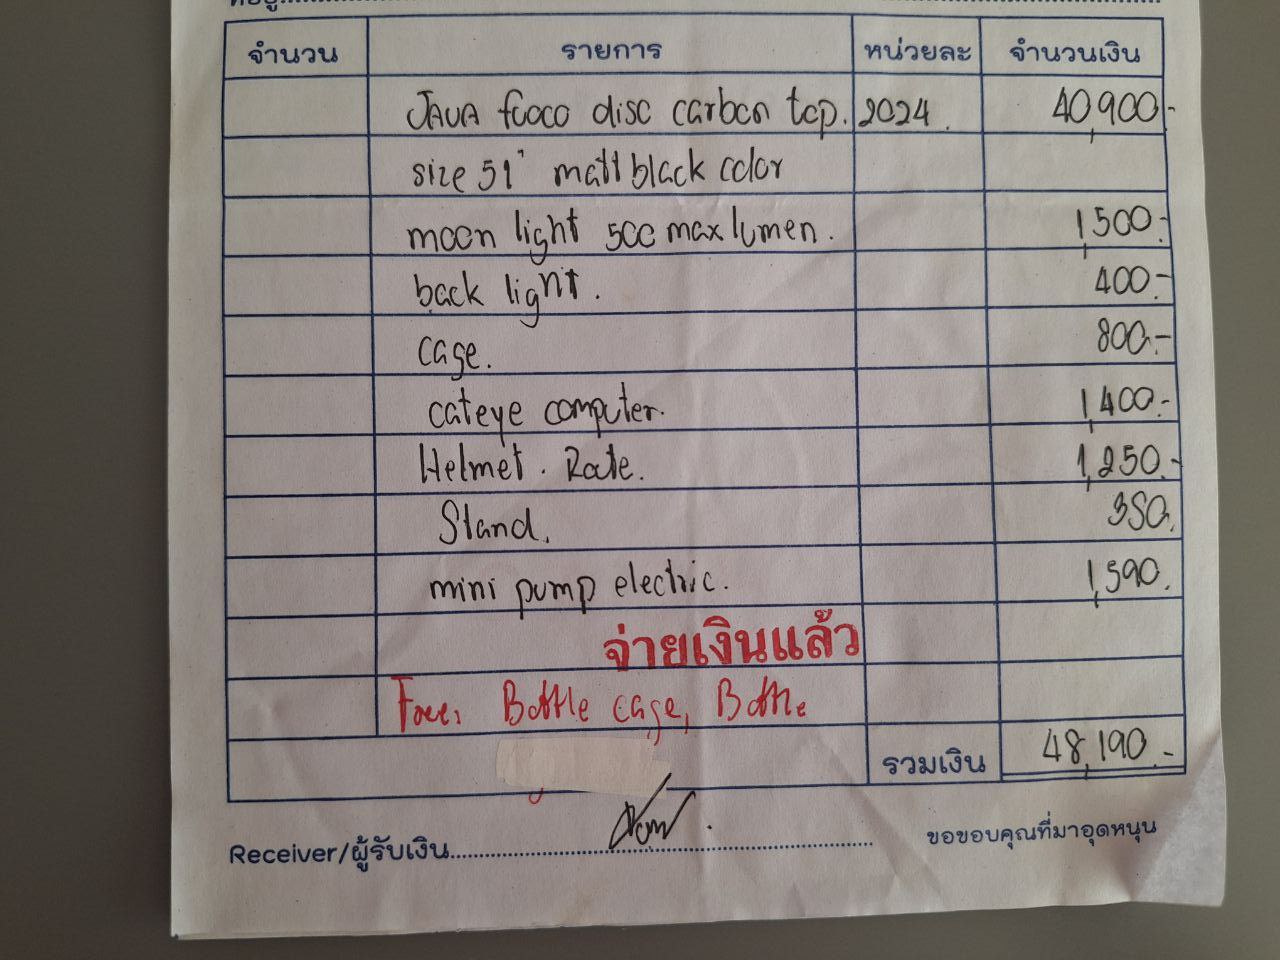 จำนวน รายการ หน่วยละ จำนวนเงิน
JAVA fuoco disc carbon top. 2024. 40,900.-
size 51" matt black color
moon light 500 max lumen. 1,500.-
back light. 400.-
case. 800.-
cateye computer. 1,400.-
Helmet. Rate. 1,250.-
Stand. 350.
mini pump electric. 1,590.
จ่ายเงินแล้ว
Free: Bottle cage, Bottle
รวมเงิน 48,190.-
Receiver/ผู้รับเงิน
ขอขอบคุณที่มาอุดหนุน